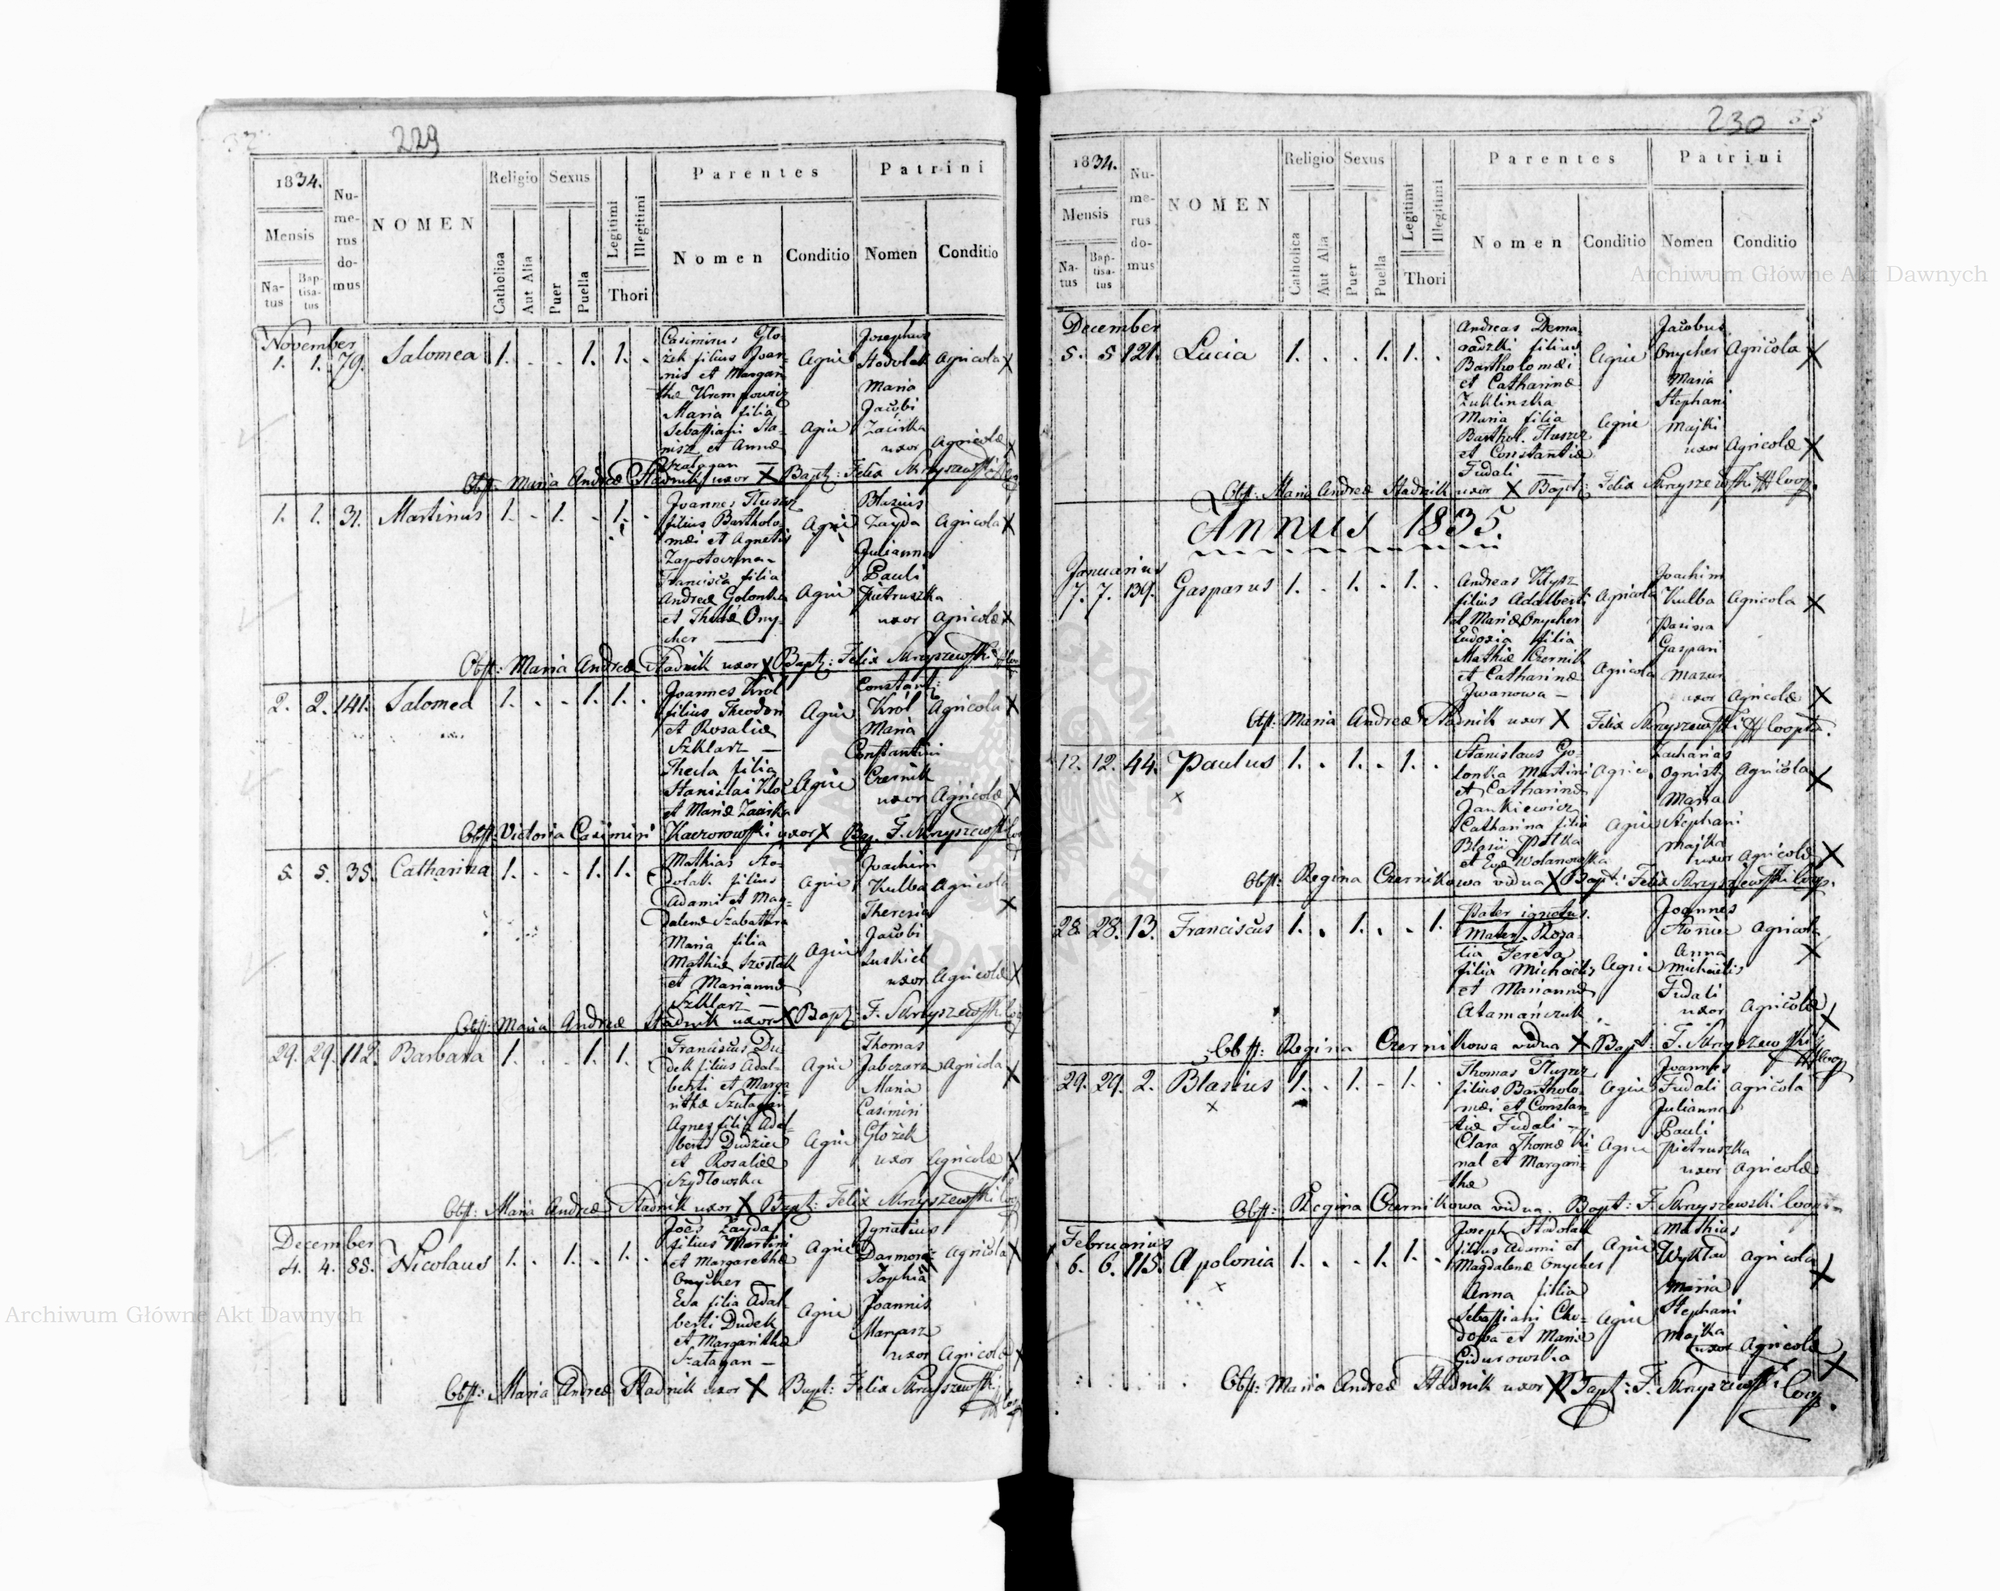 229
1834.
Mensis
Natus
Baptisatus
Numerus domus
NOMEN
Religio
Catholica
Aut Alia
Sexus
Puer
Puella
Legitimi
Illegitimi
Thori
Parentes
Nomen
Conditio
Patrini
Nomen
Conditio
November
1. 1. 79. Salomea 1. . . 1. 1. .
Casimirus Glo-
żek filius Joan-
nis et Margari
thæ Krempowicz
Maria filia
Sebastiani Sta-
nisz et Annæ
Szatagan —
Agric
Agric
Josephus
Stodolak Agricola X
Maria
Jacobi
Zacirka
uxor Agricolæ X
Obst: Maria Andreæ Stadnik uxor X Bapt: Felix Skrzyszewski
1. 1. 31. Martinus 1. . 1. . 1.
Joannes Tłuszcz
filius Bartholo
mæi et Agnetis
Francisca filia
Andreæ Golonka
et Theclæ Ony-
cher —
Agric
Agric
Blasius
Zayda Agricola X
Julianna
Pauli
Pietruszka
uxor Agricolæ X
Obst: Maria Andreæ Stadnik uxor X Bapt: Felix Skrzyszewski
2. 2. 141. Salomea 1. . . 1. 1. .
Joannes Król
filius Theodori
et Rosaliæ
Szklarz —
Thecla filia
Stanislai Kloc
et Mariæ Zacirka
Agric
Agric
Constanti
Król Agricola X
Maria
Constantini
Czernik
uxor Agricolæ X
Obst: Victoria Casimiri Kaczorowski uxor X Bap. F. Skrzyszewski
5. 5. 35. Catharina 1. . . 1. 1.
Mathias Sto-
dolak filius
Adami et Mag-
dalenæ Szabattura
Maria filia
Mathiæ Szostak
et Mariannæ
Szklarz —
Agric
Agric
Joachim
Kulba Agricola
X
Theresia
Jacobi
Luskiel
uxor Agricolæ X
Obst: Maria Andreæ Stadnik uxor X Bapt: F. Skrzyszewski
29. 29. 112. Barbara 1. . . 1. 1.
Franciscus Du-
dek filius Adal-
berti et Marga
rithæ Szatagan
Agnes filia Adal-
berti Dudziec
et Rosaliæ
Szydłowska
Agric
Agric
Thomas
Jabczarz Agricola X
Maria
Casimiri
Glożek
uxor Agricolæ X
Obst: Maria Andreæ Stadnik uxor X Bapt: Felix Skrzyszewski
December
4. 4. 88. Nicolaus 1. . 1. . 1. .
Joês Zayda
filius Martini
et Margarethæ
Onycher
Eva filia Adal-
berti Dudek
et Margarithæ
Szatagan —
Agric
Agric
Ignatius
Agricola X
Sophia
Joannis
Marpasz
uxor Agricolæ X
Obst: Maria Andreæ Stadnik uxor X Bapt: Felix Skrzyszewski
230
1834.
Mensis
Natus
Baptisatus
Numerus domus
NOMEN
Religio
Catholica
Aut Alia
Sexus
Puer
Puella
Legitimi
Illegitimi
Thori
Parentes
Nomen
Conditio
Patrini
Nomen
Conditio
December
5. 5 121. Lucia 1. . . 1. 1. .
Andreas Dema-
radzki filius
Bartholomæi
et Catharinæ
Zuklinska
Maria filia
Barthol. Tłuszcz
et Constantiæ
Fudali —
Agric
Agric
Jacobus
Onycher Agricola X
Maria
Stephani
Majki
uxor Agricolæ X
Obst: Maria Andreæ Stadnik uxor X Bapt: Felix Skrzyszewski Coop.
Annus 1835.
Januarius
7. 7. 139. Gasparus 1. . 1. . 1. .
Andreas Kłysz
filius Adalberti
et Mariæ Onycher
Eudoxia filia
Mathiæ Czernik
et Catharinæ
Iwanowa —
Agricola
Agricola
Joachim
Kulba Agricola X
Parisna
Gaspari
Mazur
uxor Agricolæ X
Obst: Maria Andreæ Stadnik uxor X Felix Skrzyszewski Coopta.
12. 12. 44. Paulus 1. . 1. . 1. .
X
Stanislaus Go-
lonka Martini
et Catharinæ
Jankiewicz
Catharina filia
Blasii Płatka
et Evæ Wolanowska
Agric
Agric
Zacharias
Ognisty Agricola X
Maria
Stephani
Majka
uxor Agricolæ X
Obst: Regina Czernikowa vidua X Bapt: Felix Skrzyszewski Coop.
28. 28. 13. Franciscus 1. . 1. . . 1.
Pater ignotus.
Mater Roza-
lia Fereta
filia Michaelis
et Mariannæ
Atamańczuk
Agric
Joannes
Agricola
X
Anna
Michaelis
Fudali
uxor Agricolæ X
Obst: Regina Czernikowa vidua X Bapt: F. Skrzyszewski Coop
29. 29. 2. Blasius 1. . 1. . 1. .
X
Thomas Tłuszcz
filius Bartholo-
mæi et Constan-
tiæ Fudali —
Clara Thomæ Ki-
nal et Margari-
thæ
Agric
Agric
Joannes
Fudali Agricola
Julianna
Pauli
Pietruszka
uxor Agricolæ
Obst: Regina Czernikowa vidua. Bapt: F. Skrzyszewski Coop
Februarius
6. 6. 115. Apolonia 1. . . 1. 1. .
X
Joseph Stodolak
filius Adami et
Magdalenæ Onycher
Anna filia
Sebastiani Cho-
doba et Mariæ
Gidurowska
Agric
Agric
Mathias
Wykład Agricola X
Maria
Stephani
Majka
uxor Agricolæ X
Obst: Maria Andreæ Stadnik uxor X Bapt: F. Skrzyszewski Coop.
Archiwum Główne Akt Dawnych
Archiwum Główne Akt Dawnych